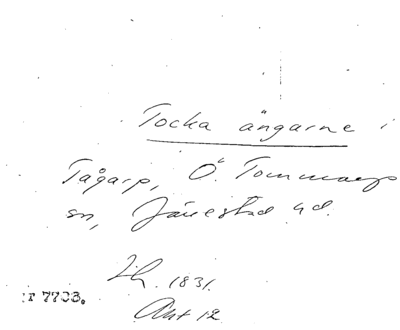 Tocka ängarne i
Tågarp, Ö. Tommarps
sn, Järrestad hd.
Lh. 1831.
Akt 12
7703.